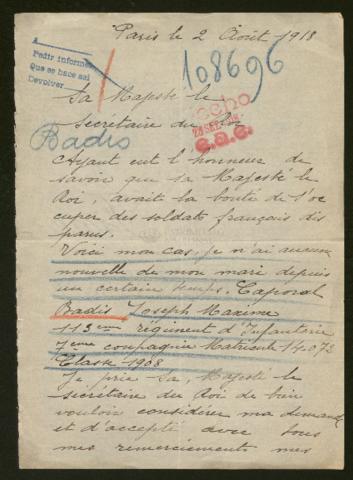 Paris le 2 Août 1918
A
Pedir informes
Que se hace asi
Devolver
108696
Sa Majesté le
secrétaire du Roi
hecho
e.a.e.
Badis
Ayant eut l'honneur de
savoir que sa Majesté le
Roi, avait la bonté de s'oc
cuper des soldats français dis
parus.
Voici mon cas, je n'ai aucune
nouvelle de mon mari depuis
un certain temps. Caporal
Badis Joseph Maxime
113eme régiment d'Infanterie
compagnie Matricule 14.073
Classe 1908
Je prie Sa, Majesté le
secrétaire du Roi de bien
vouloir considérer ma demande
et d'accepté avec tous
mes remerciements mes